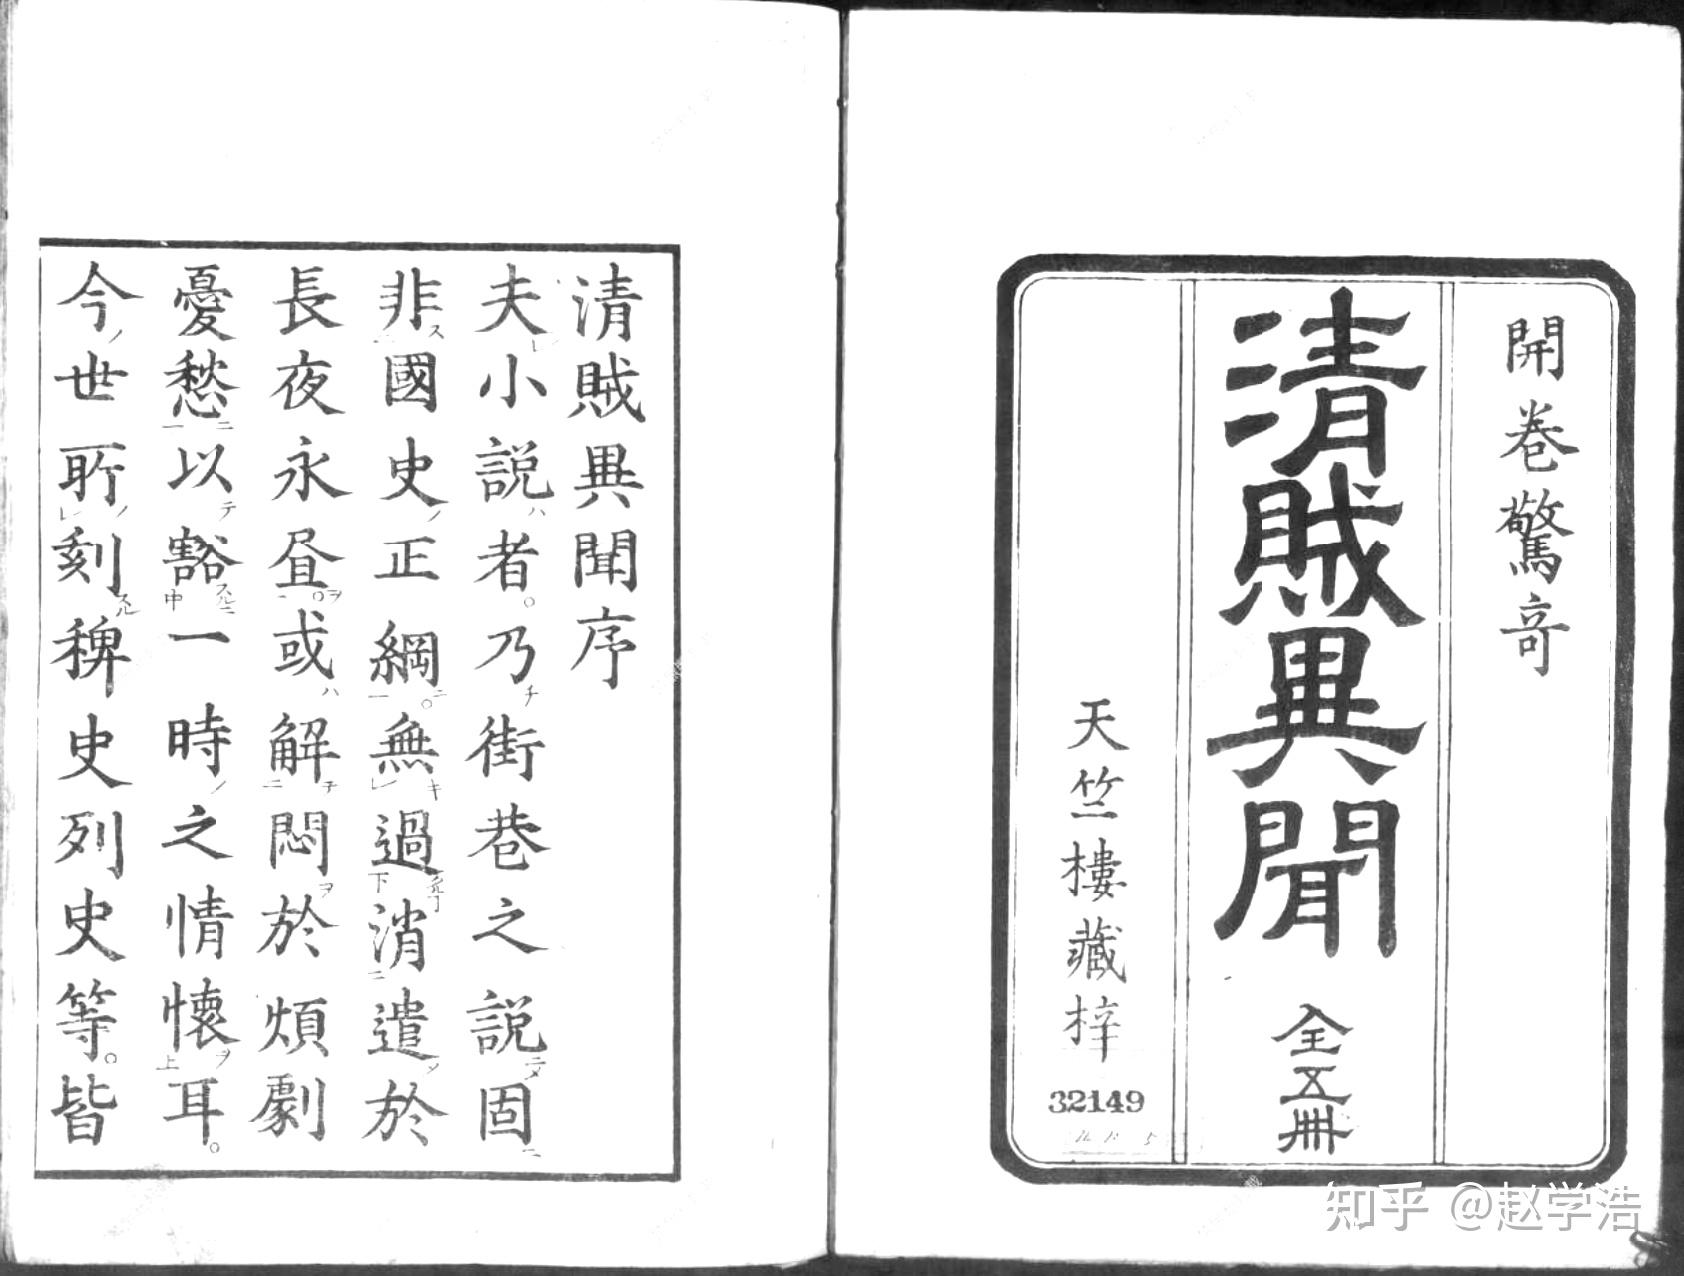 開卷驚竒
清賊異聞
全五冊
天竺樓藏梓
32149
清賊異聞序
夫小説者。乃街巷之説固
非國史正綱。無過消遣於
長夜永昼。或解悶於煩劇
憂愁以豁一時之情懷耳。
今世所刻稗史列史等。皆
知乎 @赵学浩